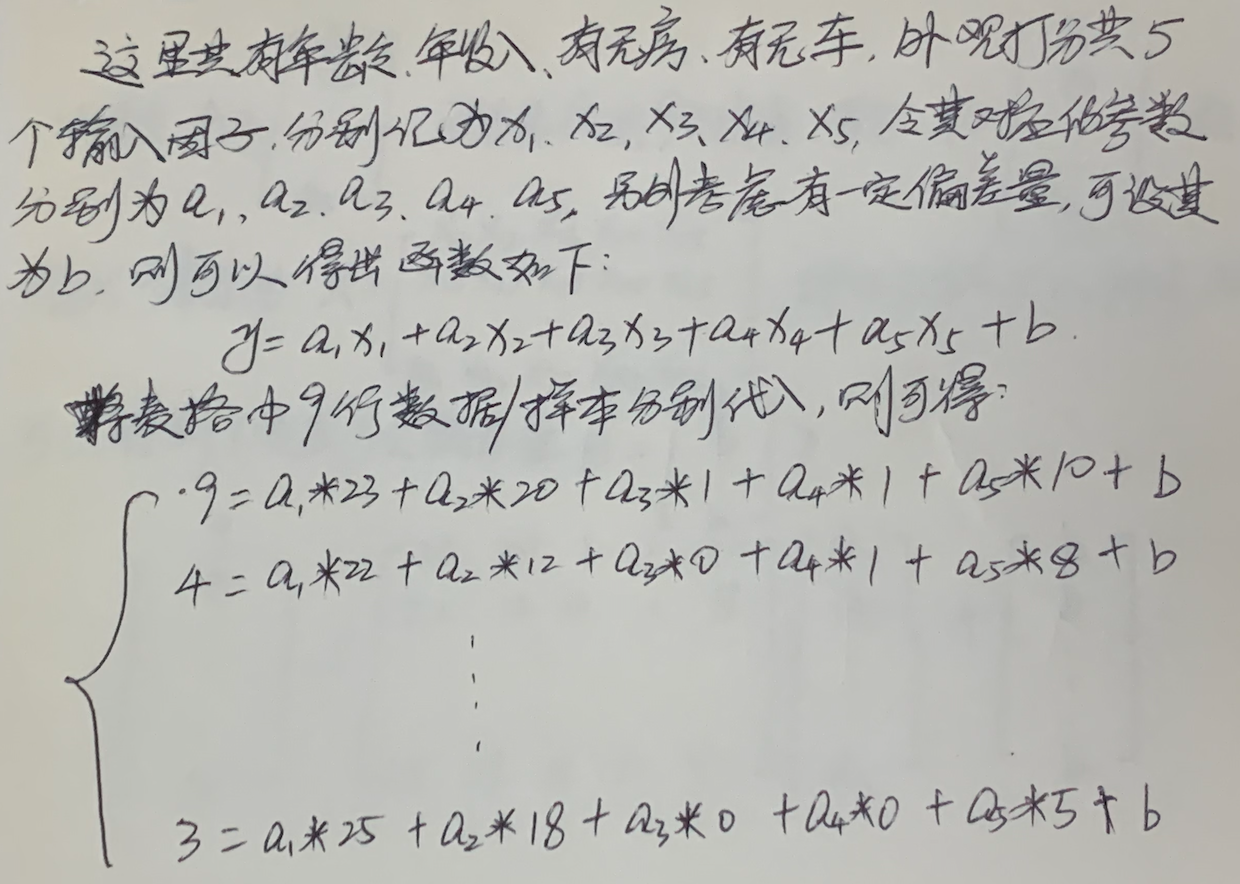 这里共有年龄、年收入、有无房、有无车，外观打分共5
个输入因子，分别记为x₁、x₂，x₃、x₄、x₅，令其对应的参数
分别为a₁、a₂、a₃、a₄、a₅，另外考虑有一定偏差量，可设其
为b，则可以得出函数如下：
y=a₁x₁+a₂x₂+a₃x₃+a₄x₄+a₅x₅+b.
将表格中9行数据/样本分别代入，则可得：
9=a₁*23+a₂*20+a₃*1+a₄*1+a₅*10+b
4=a₁*22+a₂*12+a₃*0+a₄*1+a₅*8+b
⋮
3=a₁*25+a₂*18+a₃*0+a₄*0+a₅*5+b